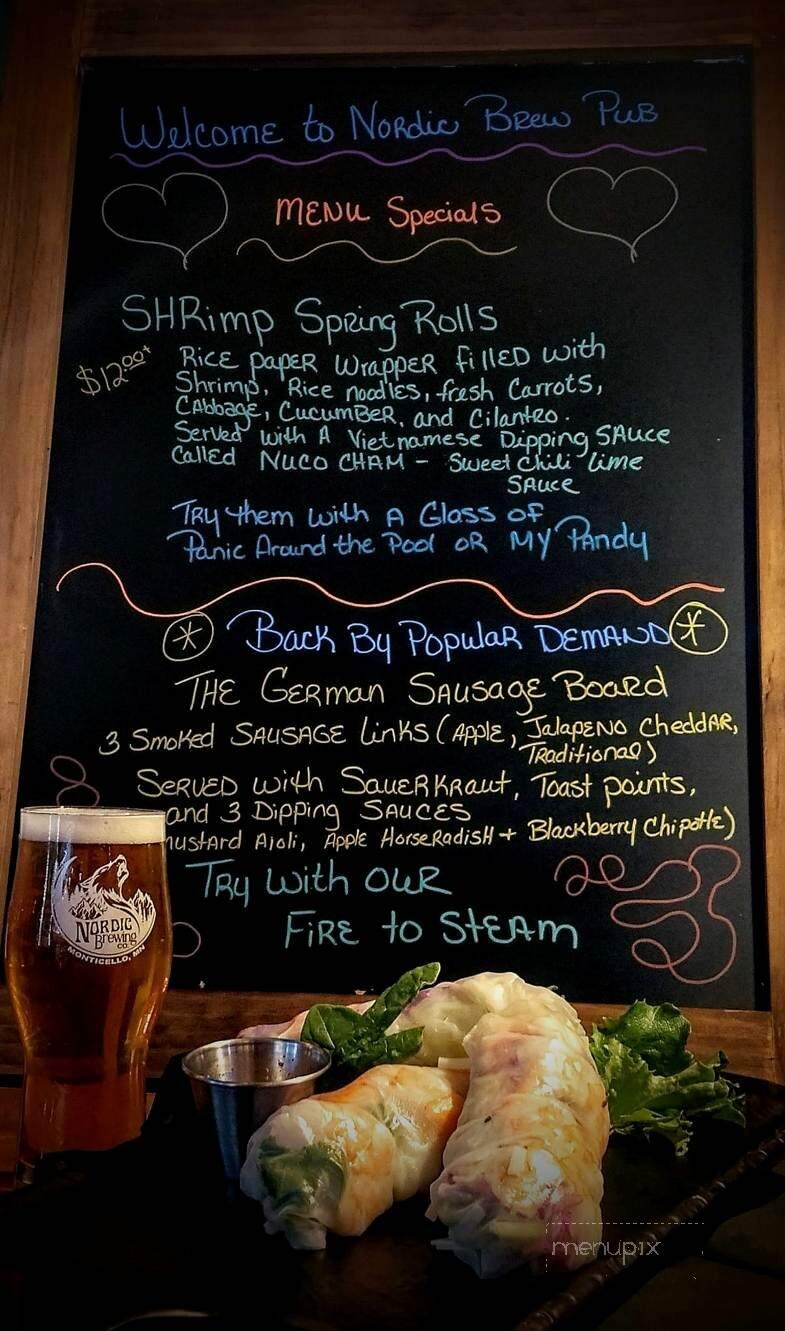 Welcome to Nordic Brew Pub
MENU Specials
SHRimp Spring Rolls
$12.00+
Rice paper wrapper filled with
Shrimp, Rice noodles, fresh Carrots,
Cabbage, Cucumber, and Cilantro.
Served with A Vietnamese Dipping Sauce
Called NUCO CHAM - Sweet Chili lime
Sauce
Try them with A Glass of
Panic Around the Pool or My Pandy
* Back By Popular Demand *
The German Sausage Board
3 Smoked Sausage Links (Apple, Jalapeno Cheddar,
Traditional)
Served with Sauerkraut, Toast points,
and 3 Dipping Sauces
mustard Aioli, Apple Horseradish + Blackberry Chipotle)
Try with our
Fire to Steam
NORDIC
Brewing
co.
MONTICELLO, MN
menupix